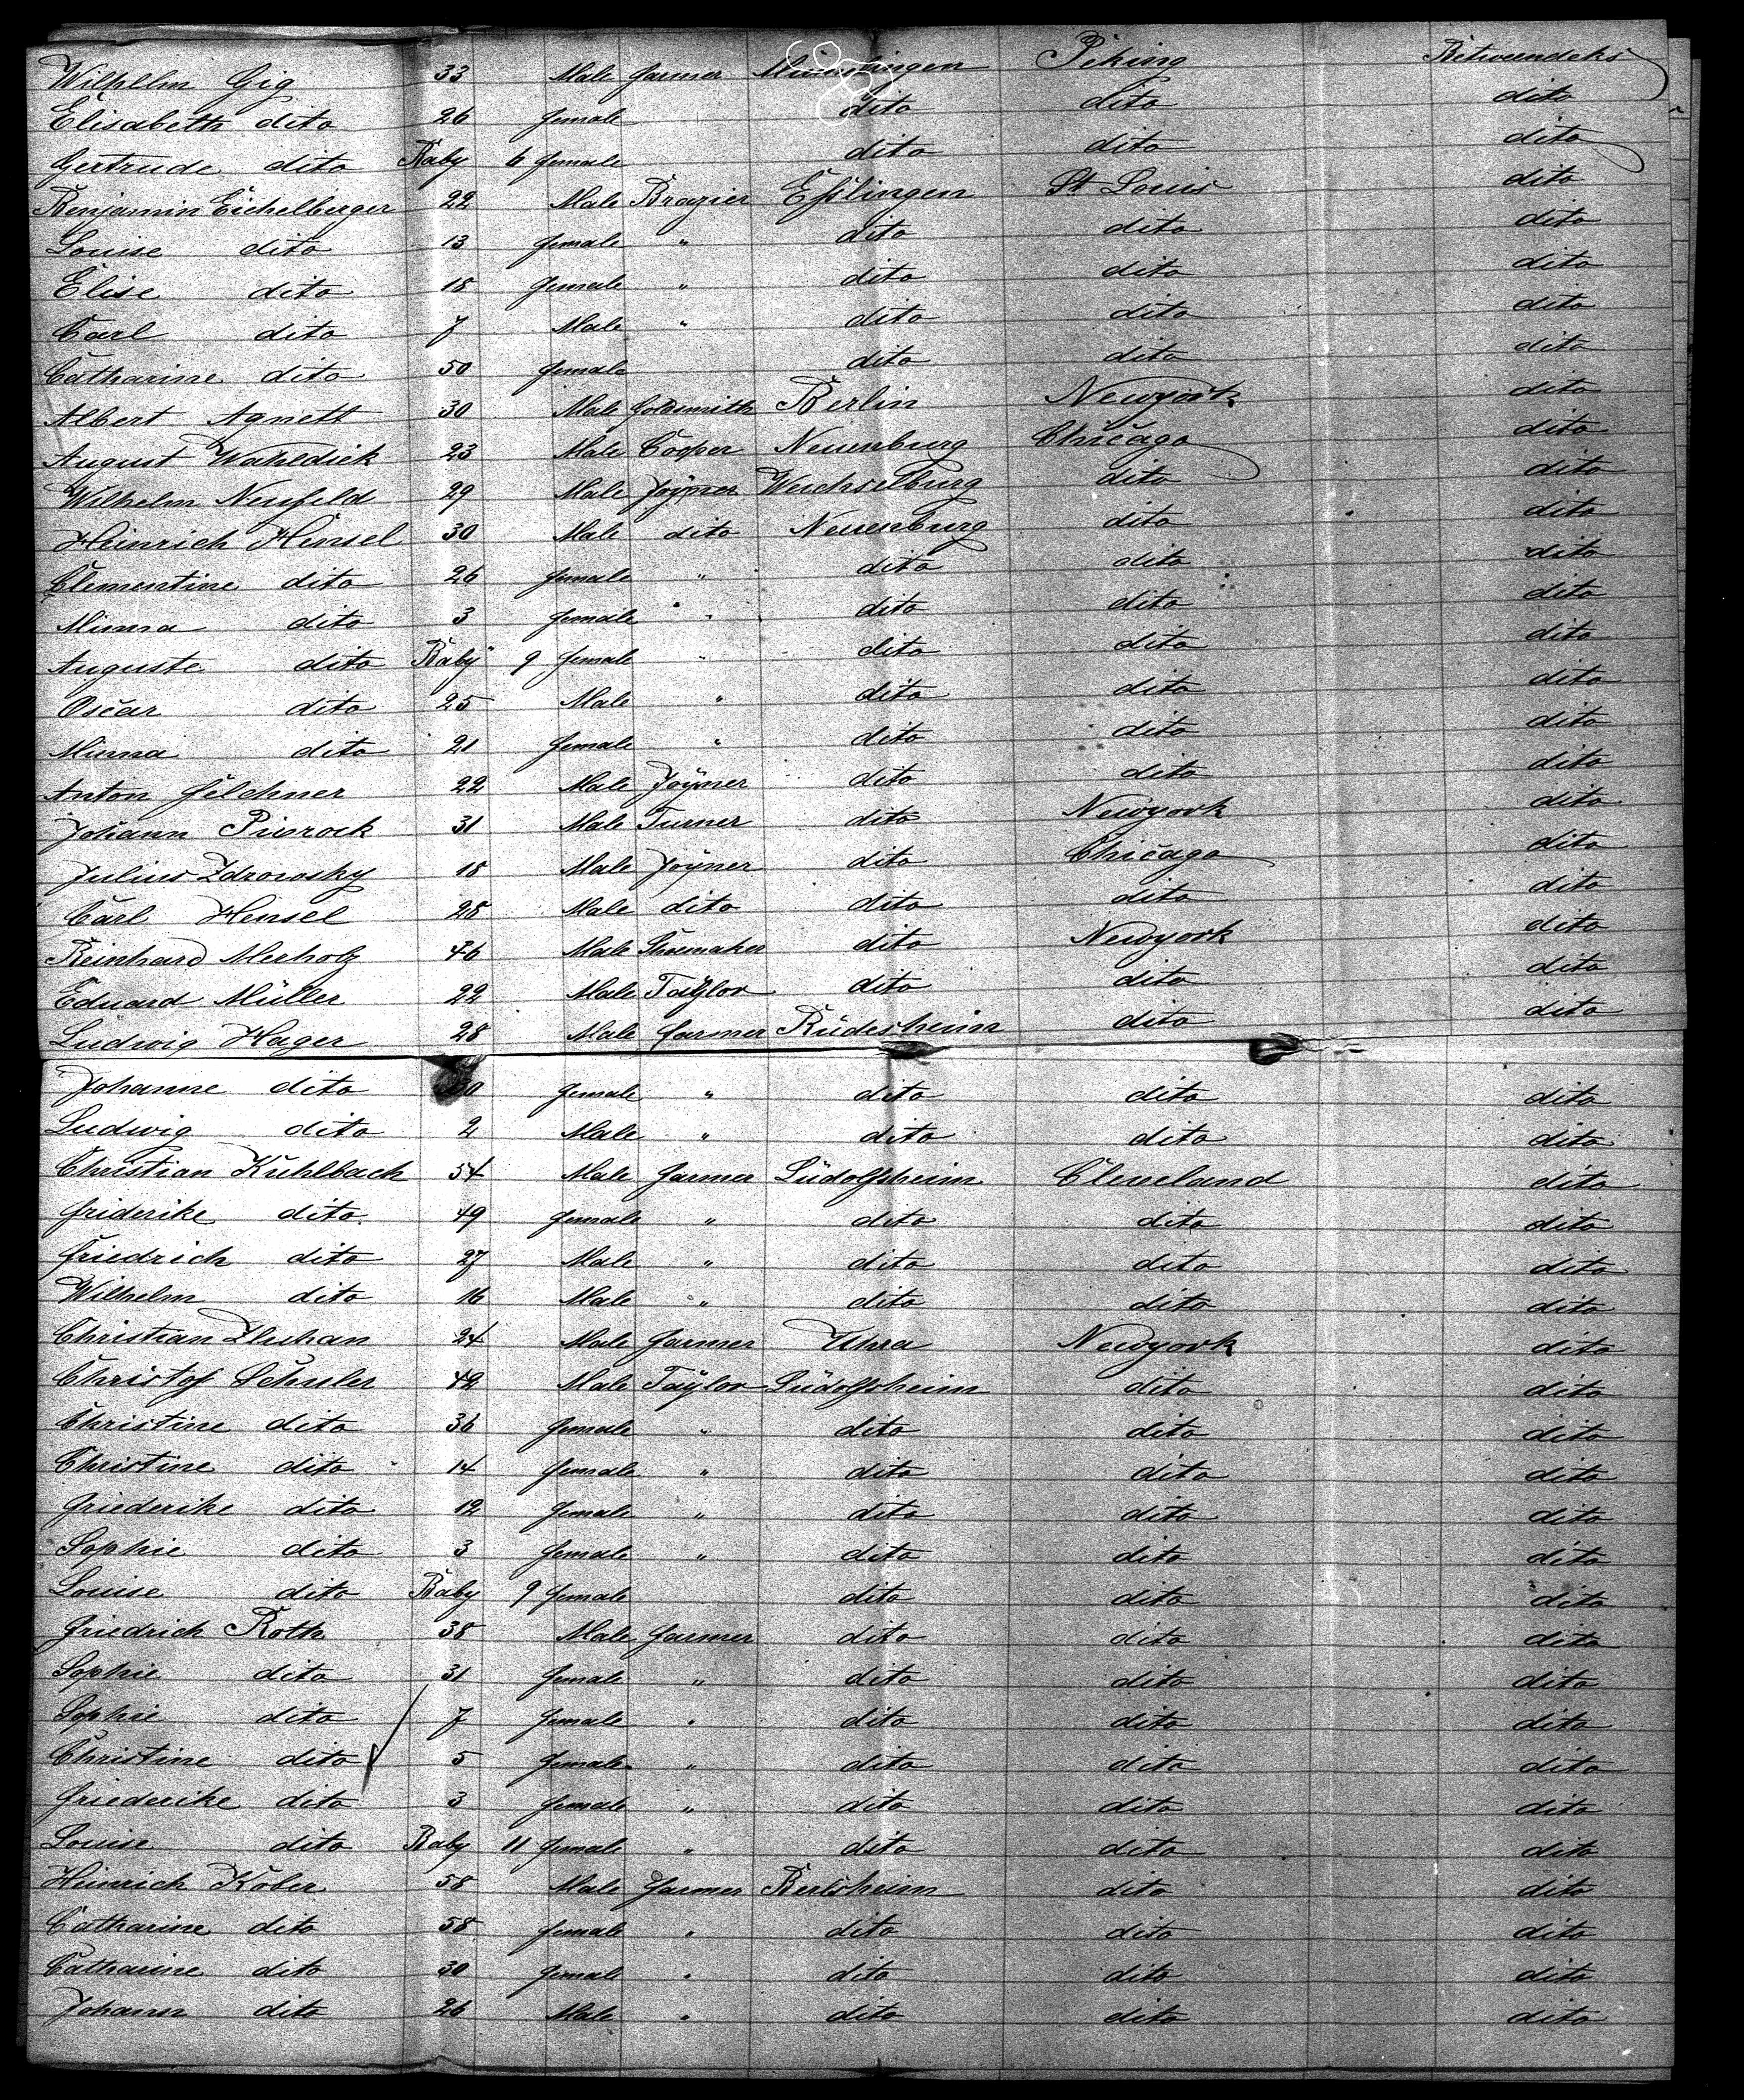 Wilhelm Gig 33 Male farmer Peking Betweendeks
Elisabeth dito 26 female dito dito dito
Gertrude dito Baby 6 female dito dito dito
Benjamin Eichelberger 22 Male Brazier Eßlingen St Louis dito
Louise dito 13 female " dito dito dito
Elise dito 18 female " dito dito dito
Carl dito 7 Male " dito dito dito
Catharine dito 50 female dito dito dito
Albert Agnett 30 Male Goldsmith Berlin Newyork dito
August Wahldick 23 Male Cooper Neuenburg Chicago dito
Wilhelm Neufeld 29 Male Joyner Weichselburg dito dito
Heinrich Hensel 30 Male dito Neuenburg dito dito
Clementine dito 26 female " dito dito dito
Minna dito 3 female " dito dito dito
Auguste dito Baby 9 female " dito dito dito
Oscar dito 25 Male " dito dito dito
Minna dito 21 female " dito dito dito
Anton Felchner 22 Male Joyner dito dito dito
Johann Piorock 31 Male Turner dito Newyork dito
Julius Zdrowsky 18 Male Joyner dito Chicago dito
Carl Hensel 28 Male dito dito dito dito
Reinhard Merholz 46 Male Shoemaker dito Newyork dito
Eduard Müller 22 Male Taylor dito dito dito
Ludwig Hager 28 Male farmer Rüdesheim dito dito
Johanne dito female " dito dito dito
Ludwig dito 2 Male " dito dito dito
Christian Kuhlback 54 Male farmer Lüdolfsheim Cleveland dito
Friderike dito 49 female " dito dito dito
Friedrich dito 27 Male " dito dito dito
Wilhelm dito 16 Male " dito dito dito
Christian 24 Male farmer Uhra Newyork dito
Christof Schuler 42 Male Taylor Lüdolfsheim dito dito
Christine dito 36 female " dito dito dito
Christine dito 14 female " dito dito dito
Friederike dito 12 female " dito dito dito
Sophie dito 3 female " dito dito dito
Louise dito Baby 9 female dito dito dito
Friedrich Roth 38 Male farmer dito dito dito
Sophie dito 31 female " dito dito dito
Sophie dito 7 female " dito dito dito
Christine dito 5 female " dito dito dito
Friederike dito 3 female " dito dito dito
Louise dito Baby 11 female " dito dito dito
Heinrich Kober 58 Male farmer Berlsheim dito dito
Catharine dito 58 female " dito dito dito
Catharine dito 30 female " dito dito dito
Johann dito 26 Male " dito dito dito